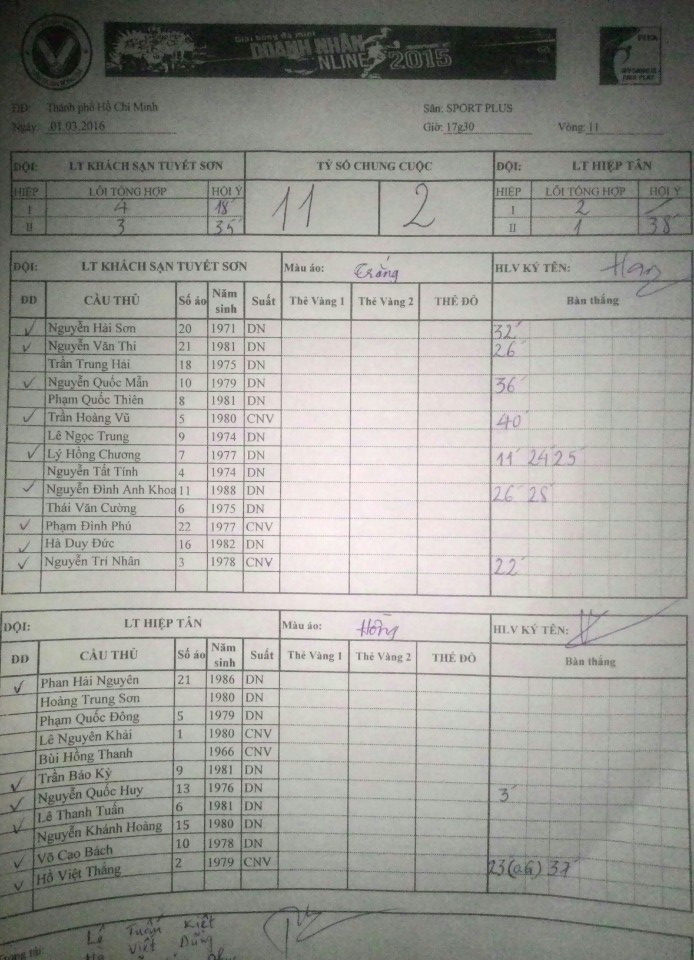 Giải bóng đá mini
DOANH NHÂN
NLINE 2015
FIFA
FAIR PLAY
ĐĐ: Thành phố Hồ Chí Minh Sân: SPORT PLUS
Ngày: 01.03.2016 Giờ: 17g30 Vòng: 11
ĐỘI: LT KHÁCH SẠN TUYẾT SƠN TỶ SỐ CHUNG CUỘC ĐỘI: LT HIỆP TÂN
HIỆP LỖI TỔNG HỢP HỘI Ý 11 2 HIỆP LỖI TỔNG HỢP HỘI Ý
I 4 18' I 2 /
II 3 35' II 1 38'
ĐỘI: LT KHÁCH SẠN TUYẾT SƠN Màu áo: Trắng HLV KÝ TÊN:
ĐD CẦU THỦ Số áo Năm sinh Suất Thẻ Vàng 1 Thẻ Vàng 2 THẺ ĐỎ Bàn thắng
✓ Nguyễn Hải Sơn 20 1971 DN 32'
✓ Nguyễn Văn Thi 21 1981 DN 26'
Trần Trung Hải 18 1975 DN
✓ Nguyễn Quốc Mẫn 10 1979 DN 36'
Phạm Quốc Thiên 8 1981 DN
✓ Trần Hoàng Vũ 5 1980 CNV 40'
Lê Ngọc Trung 9 1974 DN
✓ Lý Hồng Chương 7 1977 DN 11' 24' 25'
Nguyễn Tất Tính 4 1974 DN
✓ Nguyễn Đình Anh Khoa 11 1988 DN 26' 28'
Thái Văn Cường 6 1975 DN
✓ Phạm Đình Phú 22 1977 CNV
✓ Hà Duy Đức 16 1982 DN
✓ Nguyễn Trí Nhân 3 1978 CNV 22'
ĐỘI: LT HIỆP TÂN Màu áo: Hồng HLV KÝ TÊN:
ĐD CẦU THỦ Số áo Năm sinh Suất Thẻ Vàng 1 Thẻ Vàng 2 THẺ ĐỎ Bàn thắng
✓ Phan Hải Nguyên 21 1986 DN
Hoàng Trung Sơn 1980 DN
Phạm Quốc Đông 5 1979 DN
Lê Nguyên Khải 1 1980 CNV
Bùi Hồng Thanh 1966 CNV
✓ Trần Bảo Kỳ 9 1981 DN
✓ Nguyễn Quốc Huy 13 1976 DN 3'
✓ Lê Thanh Tuấn 6 1981 DN
Nguyễn Khánh Hoàng 15 1980 DN
✓ Võ Cao Bách 10 1978 DN
✓ Hồ Việt Thắng 2 1979 CNV 23'(OG) 37'
Lê Tuấn Kiệt
Việt Dũng